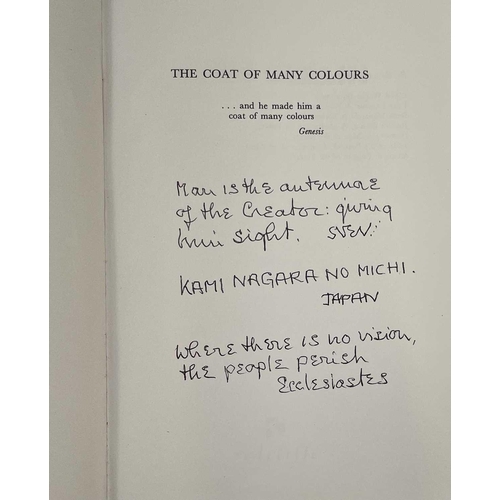 THE COAT OF MANY COLOURS
. . . and he made him a
coat of many colours
Genesis
Man is the antennae
of the Creator: giving
him sight. SVEN.
KAMI NAGARA NO MICHI.
JAPAN
Where there is no vision,
the people perish
Ecclesiastes